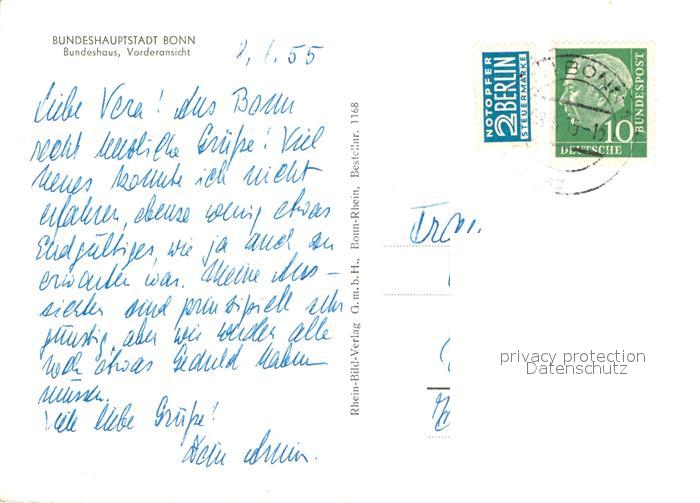 BUNDESHAUPTSTADT BONN
Bundeshaus, Vorderansicht
55
Liebe Vera! Aus Bonn
recht herzliche Grüße! Viel
neues konnte ich nicht
erfahren, ebenso wenig etwas
Endgültiges, wie ja auch zu
erwarten war. Meine Aus-
sichten sind prinzipiell sehr
günstig, aber wir werden alle
noch etwas Geduld haben
müssen.
Viele liebe Grüße!
Dein Armin.
Rhein-Bild-Verlag G.m.b.H., Bonn-Rhein, Bestellnr. 1168
NOTOPFER
2 BERLIN
STEUERMARKE
BONN
10
DEUTSCHE
BUNDESPOST
privacy protection
Datenschutz